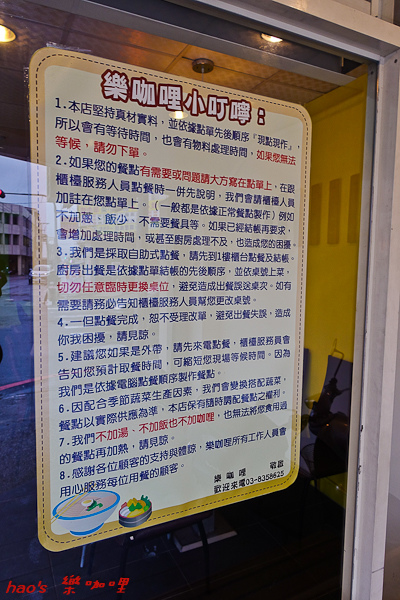 樂咖哩小叮嚀：
1.本店堅持真材實料，並依據點單先後順序『現點現作』，
所以會有等待時間，也會有物料處理時間，如果您無法
等候，請勿下單。
2.如果您的餐點有需要或問題請大方寫在點單上，在跟
櫃檯服務人員點餐時一併先說明，我們會請櫃檯人員
加註在您點單上。（一般都是依據正常餐點製作）例如
不加蔥、飯少、不需要餐具等。如果已經結帳再要求，
會增加處理時間，或甚至廚房處理不及，也造成您的困擾。
3.我們是採取自助式點餐，請先到1樓櫃台點餐及結帳，
廚房出餐是依據點單結帳的先後順序，並依桌號上菜，
切勿任意臨時更換桌位，避免造成出餐誤送桌次。如有
需要請務必告知櫃檯服務人員幫您更改桌號。
4.一但點餐完成，恕不受理改單，避免出餐失誤，造成
你我困擾，請見諒。
5.建議您如果是外帶，請先來電點餐，櫃檯服務員會
告知您預計取餐時間，可縮短您現場等候時間。因為
我們是依據電腦點餐順序製作餐點。
6.因配合季節蔬菜生產因素，我們會變換搭配蔬菜，
餐點以實際供應為準，本店保有隨時調配餐點之權利。
7.我們不加湯、不加飯也不加咖哩，也無法將您食用過
的餐點再加熱，請見諒。
8.感謝各位顧客的支持與體諒，樂咖哩所有工作人員會
用心服務每位用餐的顧客。
樂咖哩 敬啟
歡迎來電03-8358625
hao's 樂咖哩